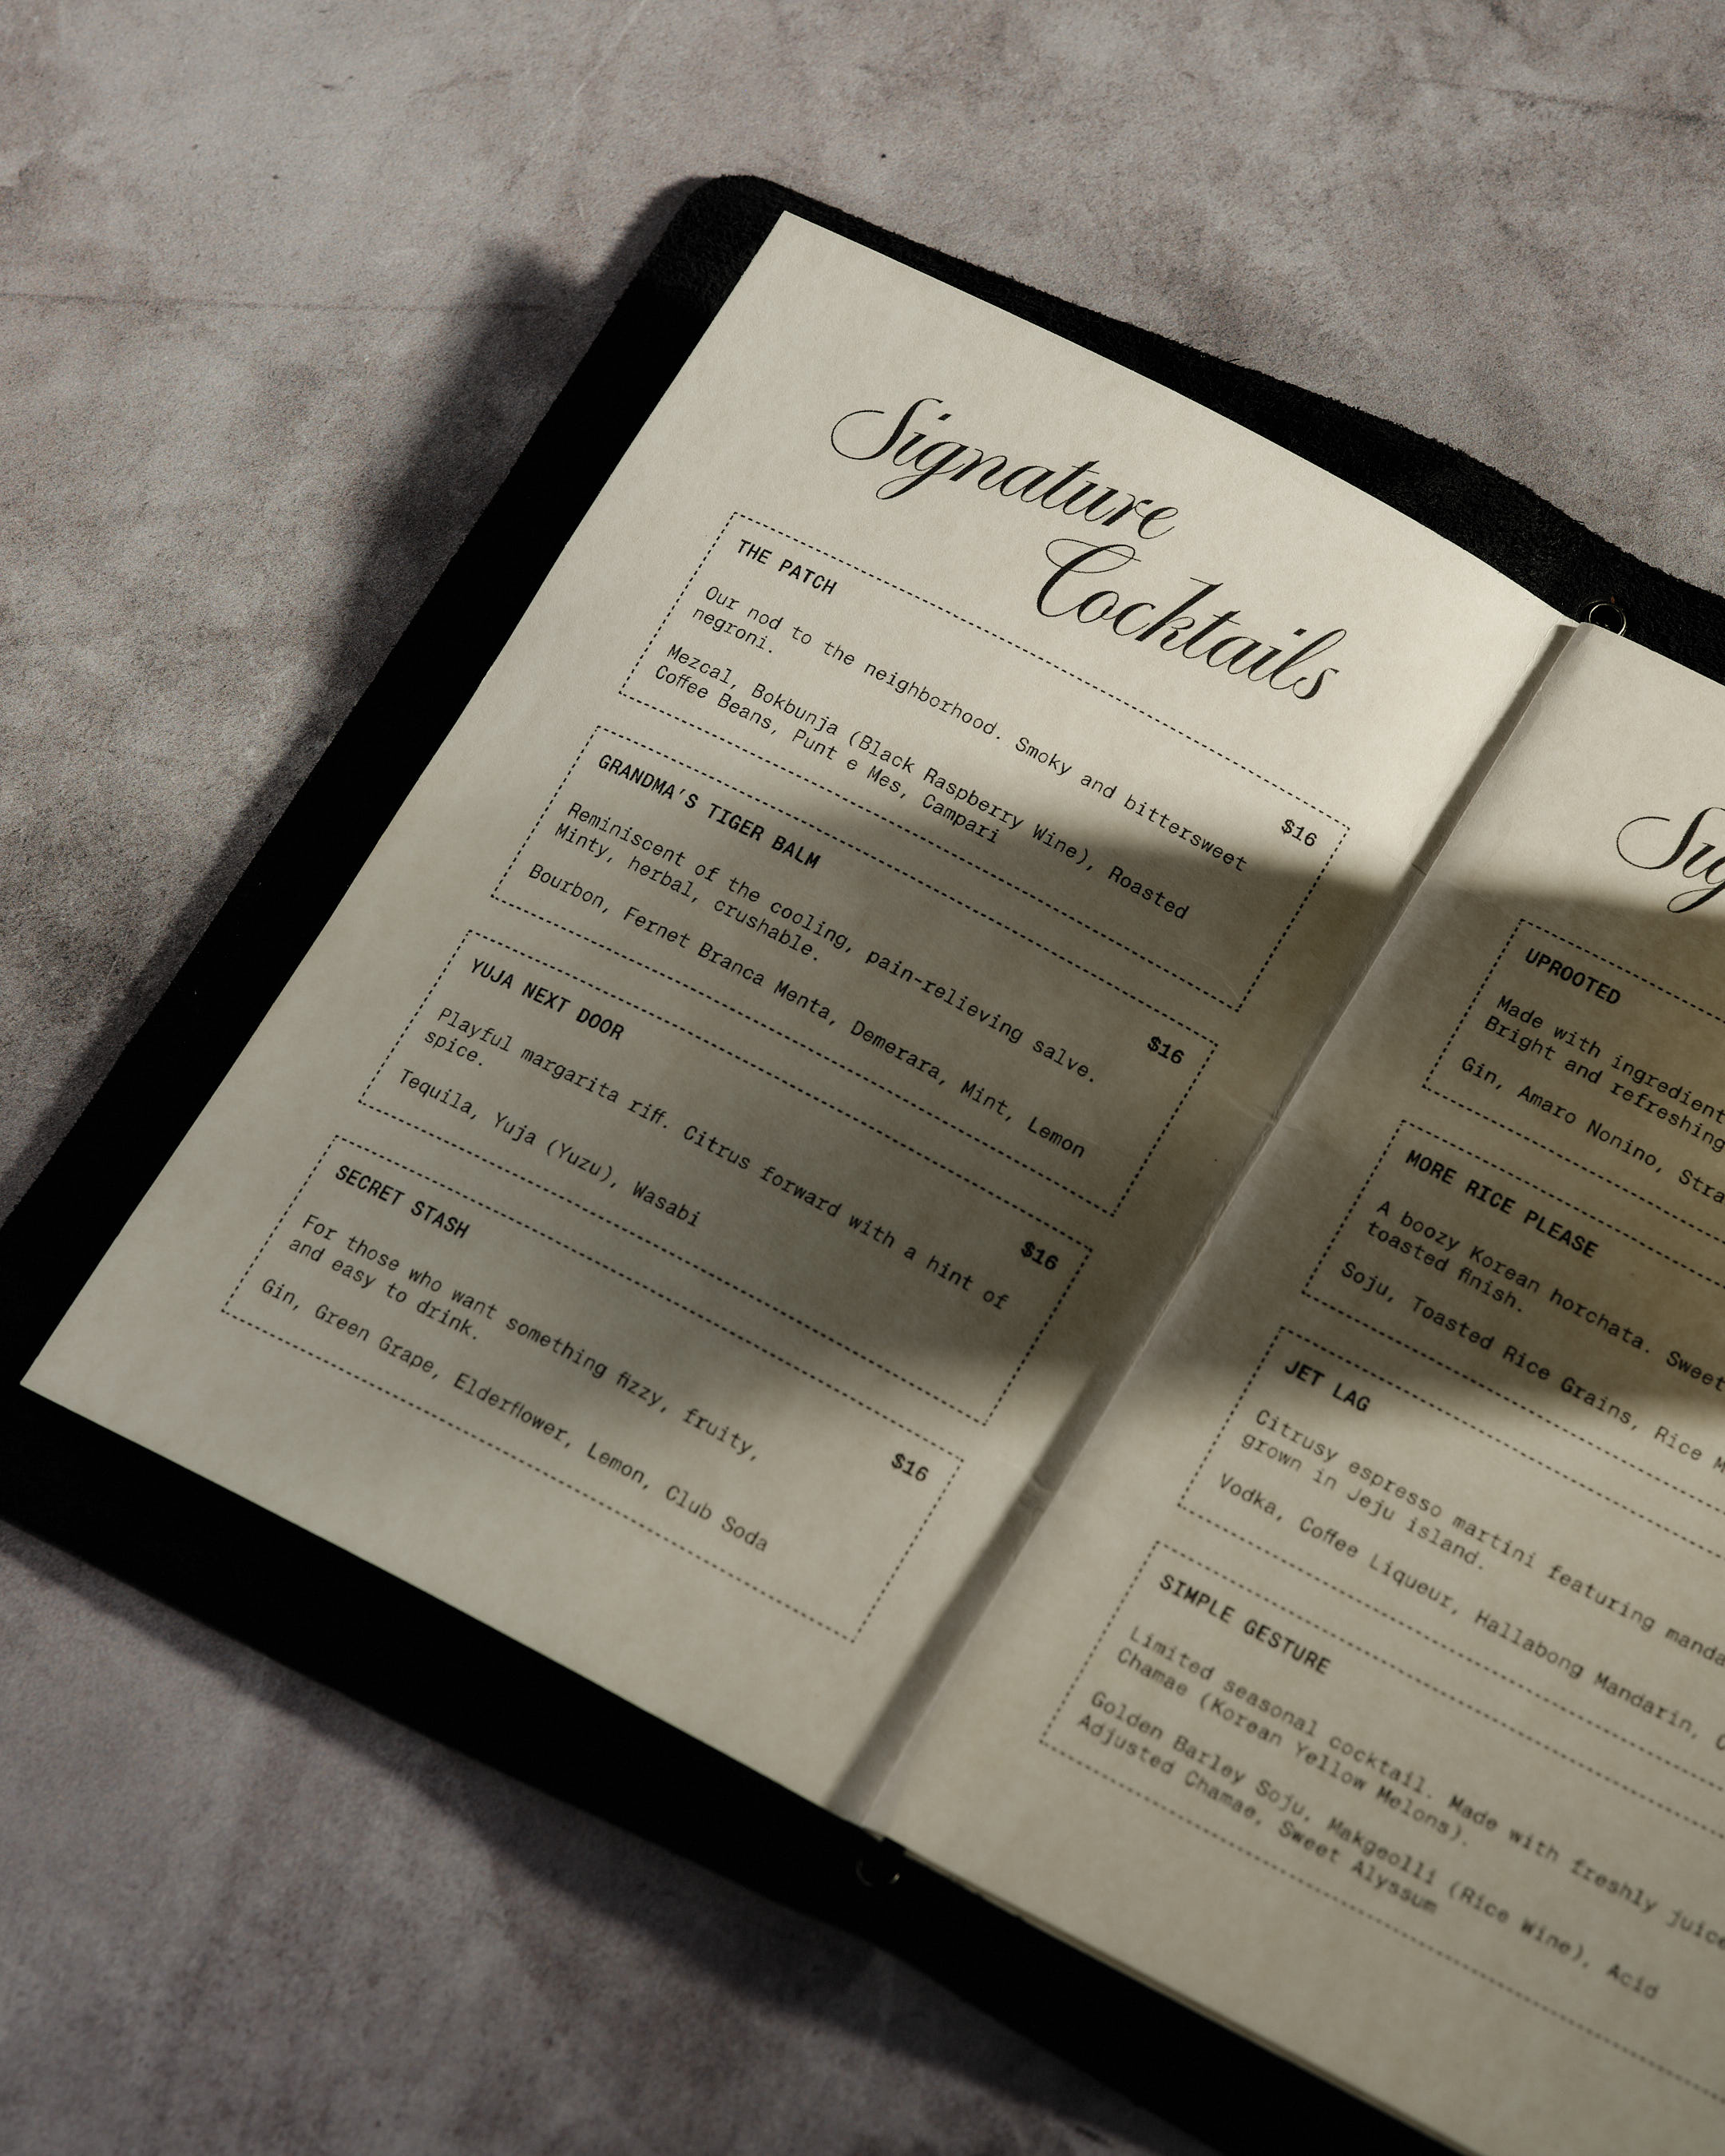 Signature
Cocktails
THE PATCH
$16
Our nod to the neighborhood. Smoky and bittersweet
negroni.
Mezcal, Bokbunja (Black Raspberry Wine), Roasted
Coffee Beans, Punt e Mes, Campari
GRANDMA'S TIGER BALM
$16
Reminiscent of the cooling, pain-relieving salve.
Minty, herbal, crushable.
Bourbon, Fernet Branca Menta, Demerara, Mint, Lemon
YUJA NEXT DOOR
$16
Playful margarita riff. Citrus forward with a hint of
spice.
Tequila, Yuja (Yuzu), Wasabi
SECRET STASH
$16
For those who want something fizzy, fruity,
and easy to drink.
Gin, Green Grape, Elderflower, Lemon, Club Soda
UPROOTED
Made with
Bright and refreshing
Gin, Amaro Nonino,
MORE RICE PLEASE
A boozy Korean horchata. Sweet
toasted finish.
Soju, Toasted Rice Grains, Rice
JET LAG
Citrusy espresso martini featuring
grown in Jeju island.
Vodka, Coffee Liqueur, Hallabong Mandarin,
SIMPLE GESTURE
Limited seasonal cocktail. Made with freshly
Chamae (Korean Yellow Melons).
Golden Barley Soju, Makgeolli (Rice Wine), Acid
Adjusted Chamae, Sweet Alyssum